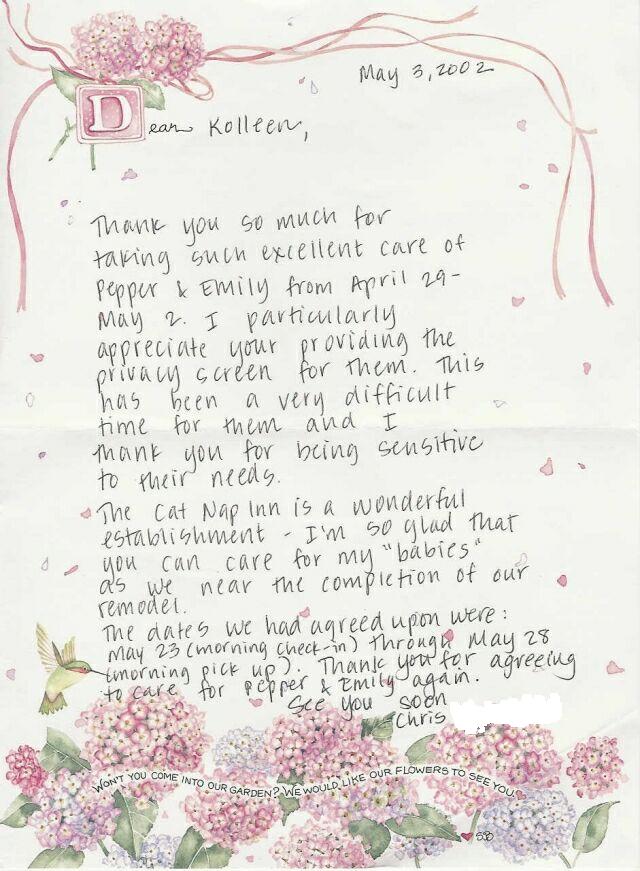 May 3, 2002
Dear Kolleen,
Thank you so much for
taking such excellent care of
Pepper & Emily from April 29-
May 2. I particularly
appreciate your providing the
privacy screen for them. This
has been a very difficult
time for them and I
thank you for being sensitive
to their needs.
The Cat Nap Inn is a wonderful
establishment - I'm so glad that
you can care for my "babies"
as we near the completion of our
remodel.
The dates we had agreed upon were:
May 23 (morning check-in) through May 28
(morning pick up). Thank you for agreeing
to care for Pepper & Emily again.
See you soon
Chris
WON'T YOU COME INTO OUR GARDEN? WE WOULD LIKE OUR FLOWERS TO SEE YOU.